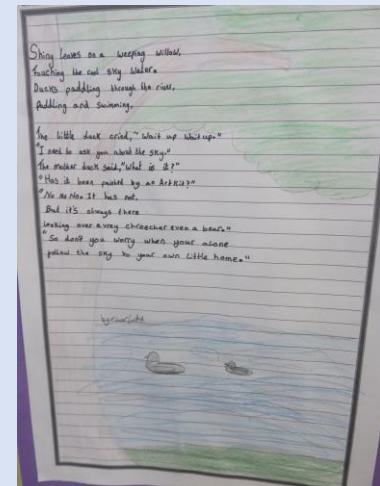 Shiny leaves on a weeping willow,
Touching the cool sky water.
Ducks paddling through the river,
Paddling and swimming.
The little duck cried, "Wait up Wait up."
"I need to ask you about the sky."
The mother duck said, "What is it?"
"Has it been painted by an Artkit?"
"No No No It has not.
But it's always there
Looking over every even a bear."
"So don't you worry when your alone
follow the sky to your own little home."
by